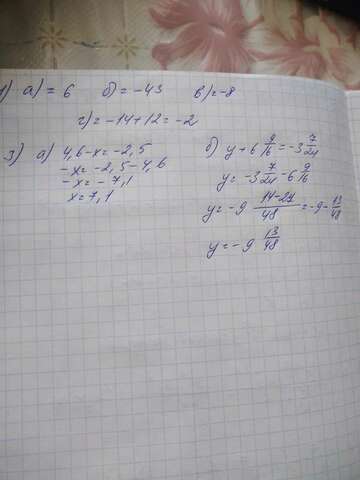 1) а) = 6 б) = -43 в) = -8
г) = -14+12 = -2
3) а) 4,6-x = -2,5
-x = -2,5-4,6
-x = -7,1
x = 7,1
б) y+6 9/16 = -3 7/24
y = -3 7/24 - 6 9/16
y = -9 14-27/48 = -9-13/48
y = -9 13/48